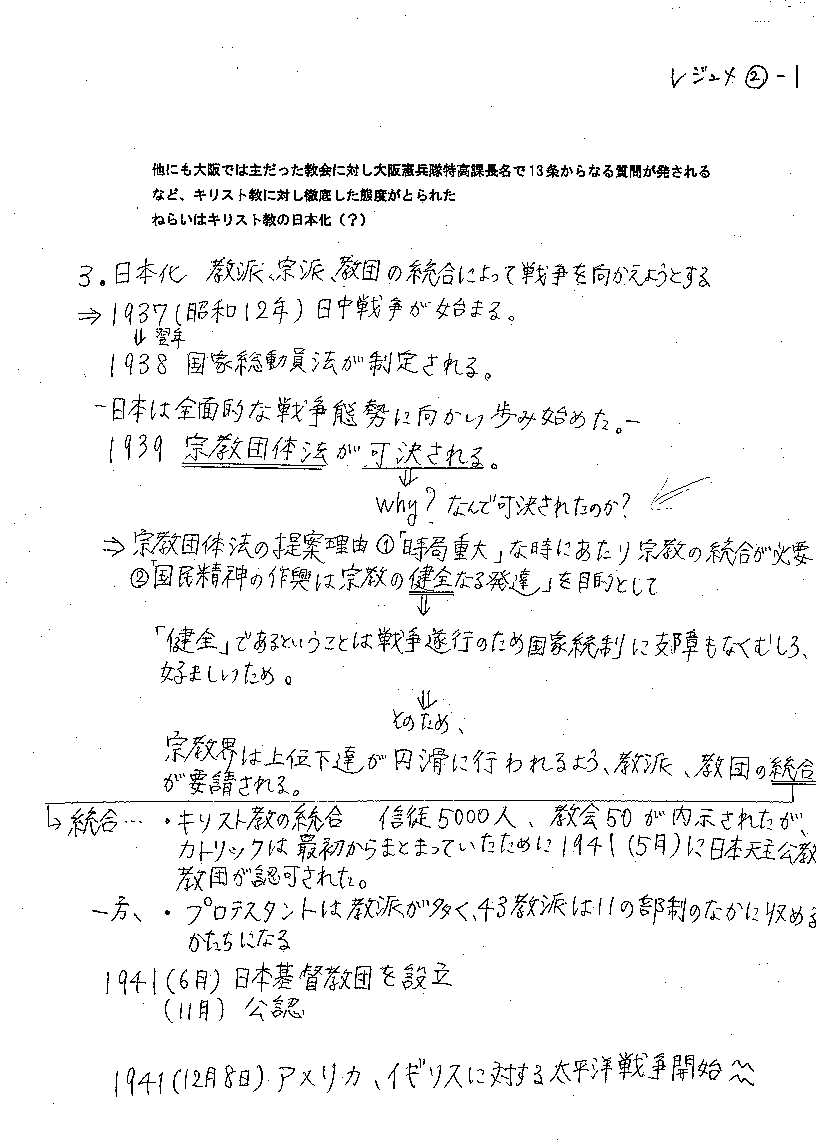 レジュメ②-1
他にも大阪では主だった教会に対し大阪憲兵隊特高課長名で13条からなる質問が発される
など、キリスト教に対し徹底した態度がとられた
ねらいはキリスト教の日本化（？）
3．日本化 教派、宗派、教団の統合によって戦争を向かえようとする
⇒1937（昭和12年）日中戦争が始まる。
⇓翌年
1938 国家総動員法が制定される。
－日本は全面的な戦争態勢に向かい歩み始めた。－
1939 宗教団体法が可決される。
⇓
Why？なんで可決されたのか？
⇒ 宗教団体法の提案理由①「時局重大」な時にあたり宗教の統合が必要
②「国民精神の作興は宗教の健全なる発達」を目的として
⇓
「健全」であるということは戦争遂行のため国家統制に支障もなくむしろ、
好ましいため。
⇓
そのため、
宗教界は上位下達が円滑に行われるよう、教派、教団の統合
が要請される。
↳統合…・キリスト教の統合 信徒5000人、教会50が内示されたが、
カトリックは最初からまとまっていたために1941（5月）に日本天主公教
教団が認可された。
一方、・プロテスタントは教派が多く、43教派は11の部制のなかに収める
かたちになる
1941（6月）日本基督教団を設立
（11月）公認
1941（12月8日）アメリカ、イギリスに対する太平洋戦争開始〜